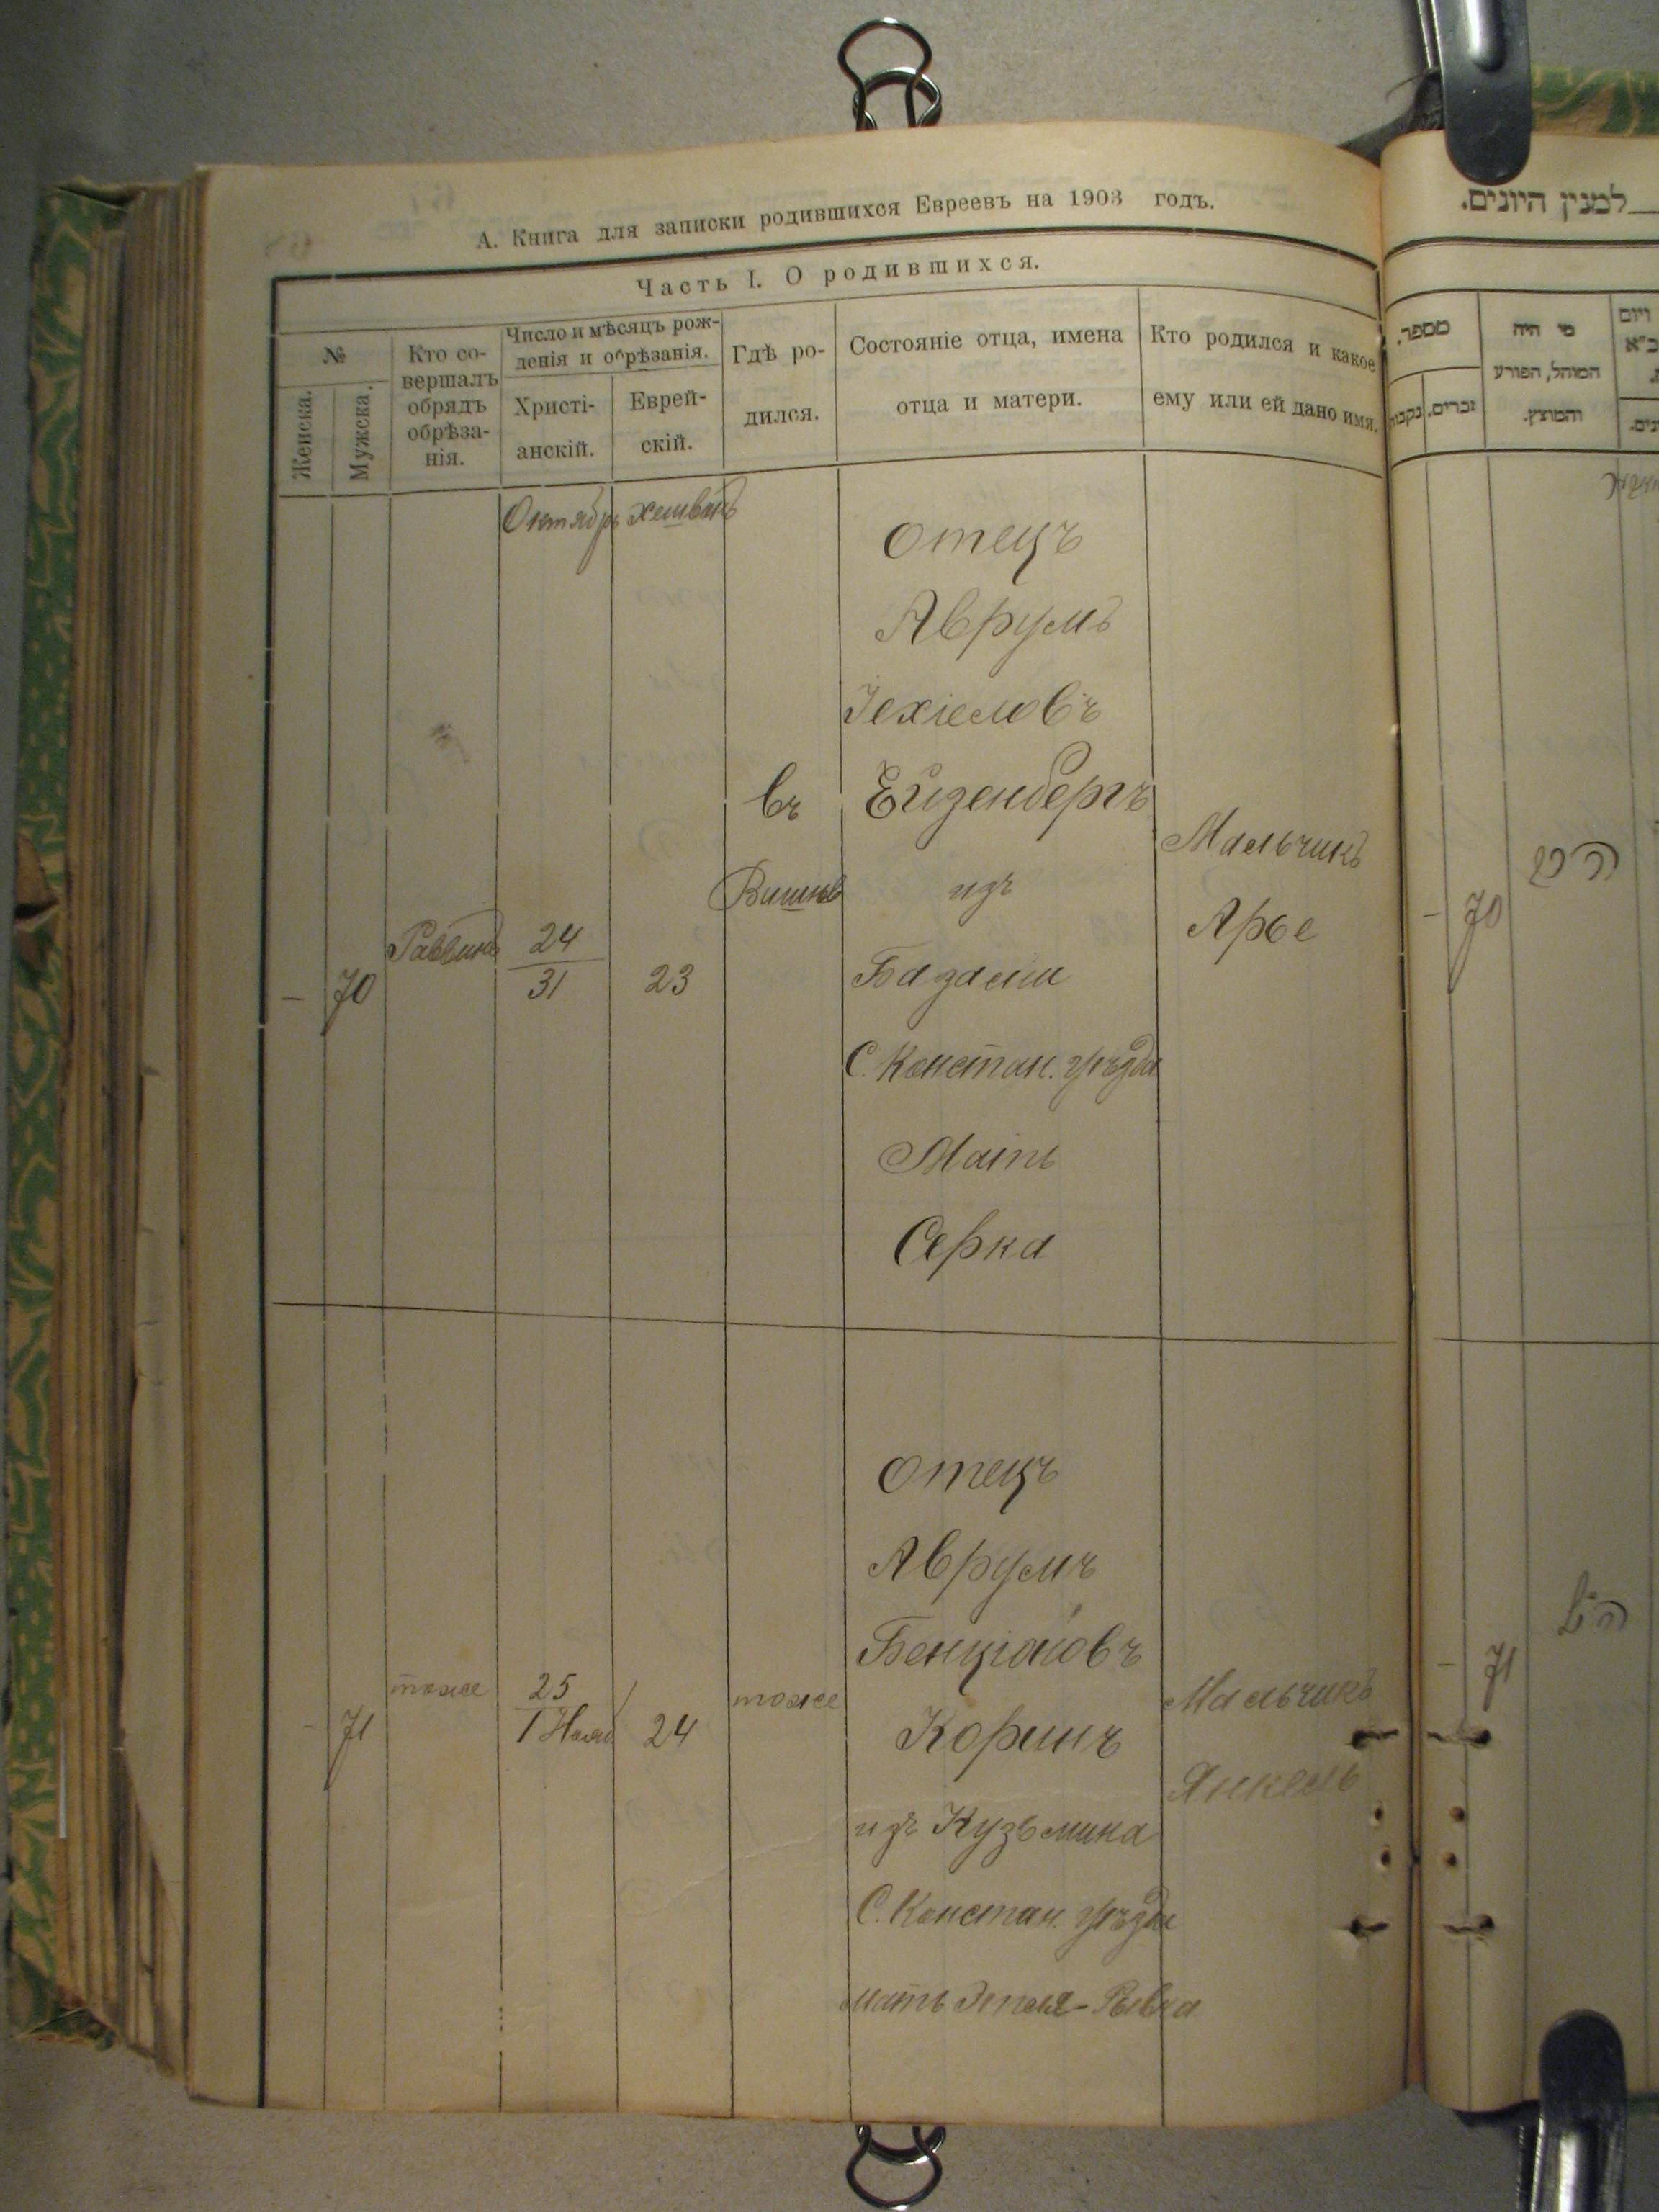 А. Книга для записки родившихся Евреевъ на 1903 годъ.
Часть I. О родившихся.
№
Женска.
Мужска.
Кто со-
вершалъ
обрядъ
обрѣза-
нія.
Число и мѣсяцъ рож-
денія и обрѣзанія.
Христі-
анскій.
Еврей-
скій.
Гдѣ ро-
дился.
Состояніе отца, имена
отца и матери.
Кто родился и какое
ему или ей дано имя.
Октябрь Хешванъ
– 70
Раввинъ
24
31
23
въ
Вишнев
Отецъ
Аврумъ
Іехіеловъ
Ейзенбергъ
изъ
Базаліи
С. Констан. уѣзда
Мать
Серка
Мальчикъ
Арье
– 71
тоже
25
1 Нояб
24
тоже
Отецъ
Аврумъ
Бенціоновъ
Коринъ
изъ Кузьмина
С. Констан. уѣзда
мать Этля-Рывка
Мальчикъ
Янкель
למנין היונים.
מספר.
נקבות
זכרים.
מי היה
המוהל, הפורע
והמוצץ.
– 70
– 71